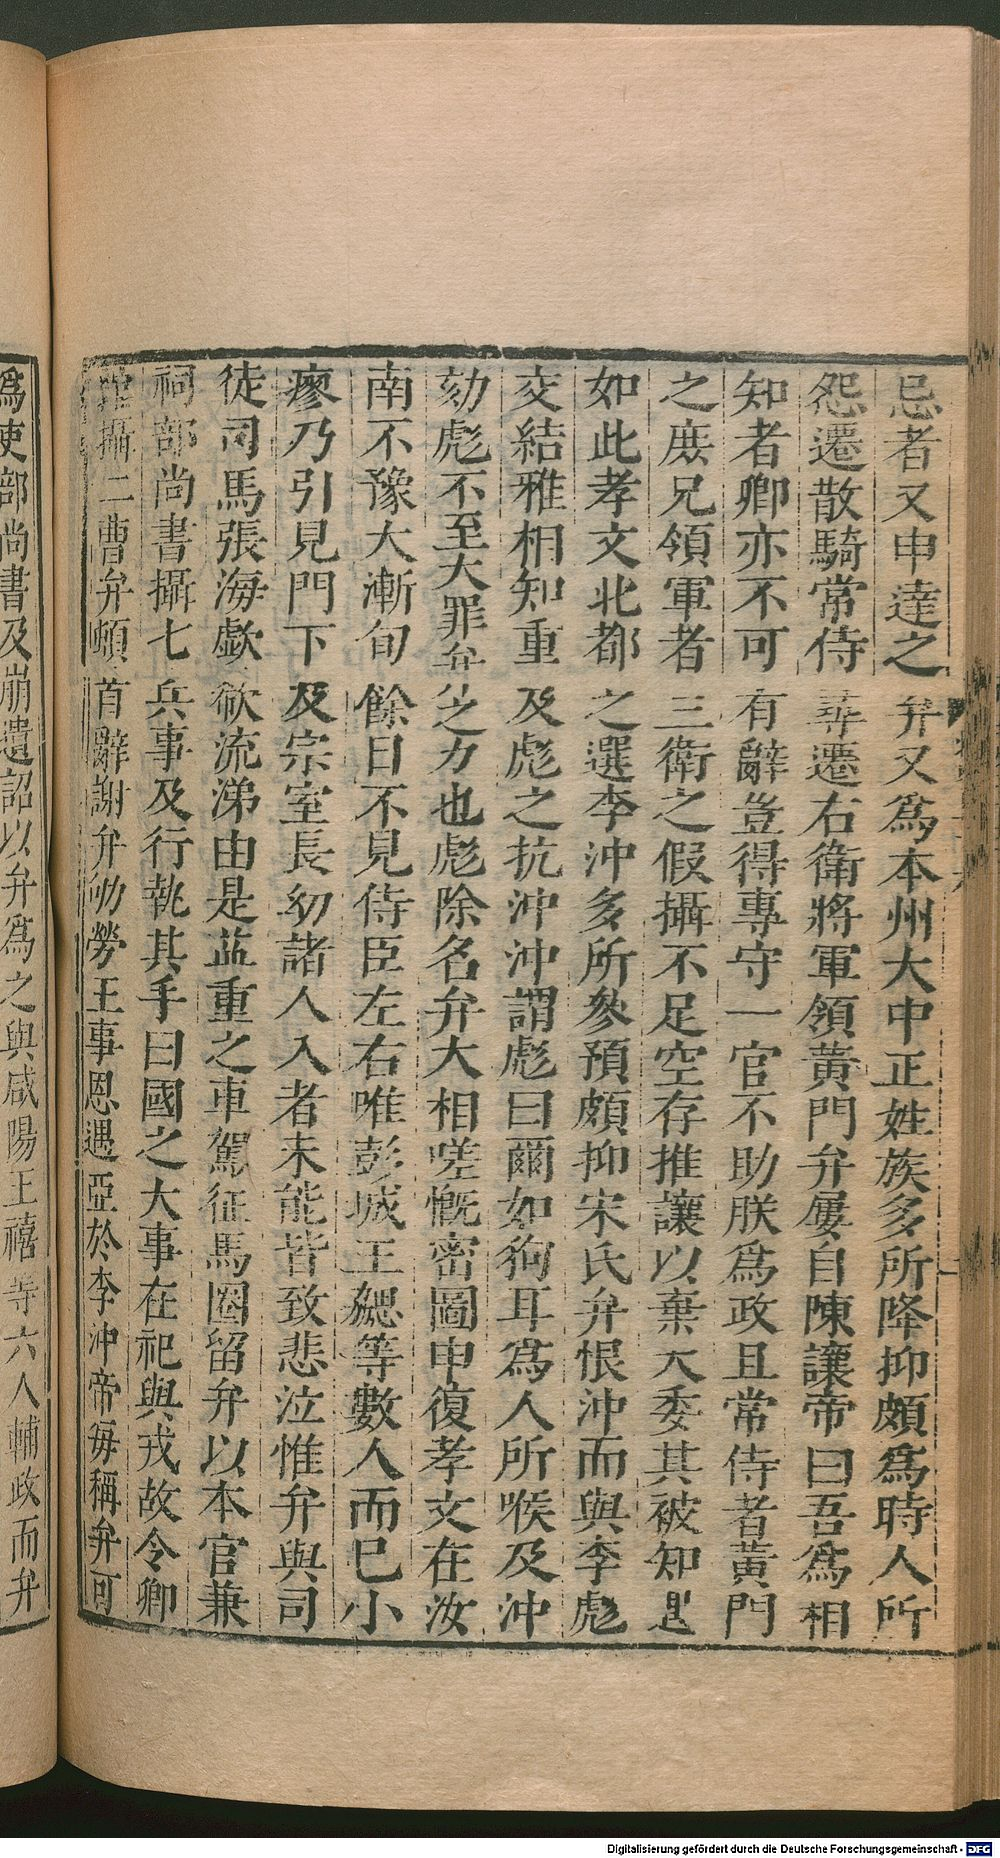 忌者又申達之弁又爲本州大中正姓族多所降抑頗爲時人所
怨遷散騎常侍尋遷右衛將軍領黃門弁屢自陳讓帝曰吾爲相
知者卿亦不可有辭豈得專守一官不助朕爲政且常侍者黃門
之庶兄領軍者三衛之假攝不足空存推讓以棄大委其被知遇
如此孝文北都之選李沖多所參預頗抑宋氏弁恨沖而與李彪
交結雅相知重及彪之抗沖沖謂彪曰爾如狗耳爲人所嗾及沖
劾彪不至大罪弁之力也彪除名弁大相嗟慨密圖申復孝文在汝
南不豫大漸旬餘日不見侍臣左右唯彭城王勰等數人而已小
瘳乃引見門下及宗室長幼諸人入者未能皆致悲泣惟弁與司
徒司馬張海歔欷流涕由是益重之車駕征馬圈留弁以本官兼
祠部尚書攝七兵事及行執其手曰國之大事在祀與戎故令卿
攝二曹弁頓首辭謝弁劬勞王事恩遇亞於李沖帝每稱弁可
爲吏部尚書及崩遺詔以弁爲之與咸陽王禧等六人輔政而弁
Digitalisierung gefördert durch die Deutsche Forschungsgemeinschaft - DFG